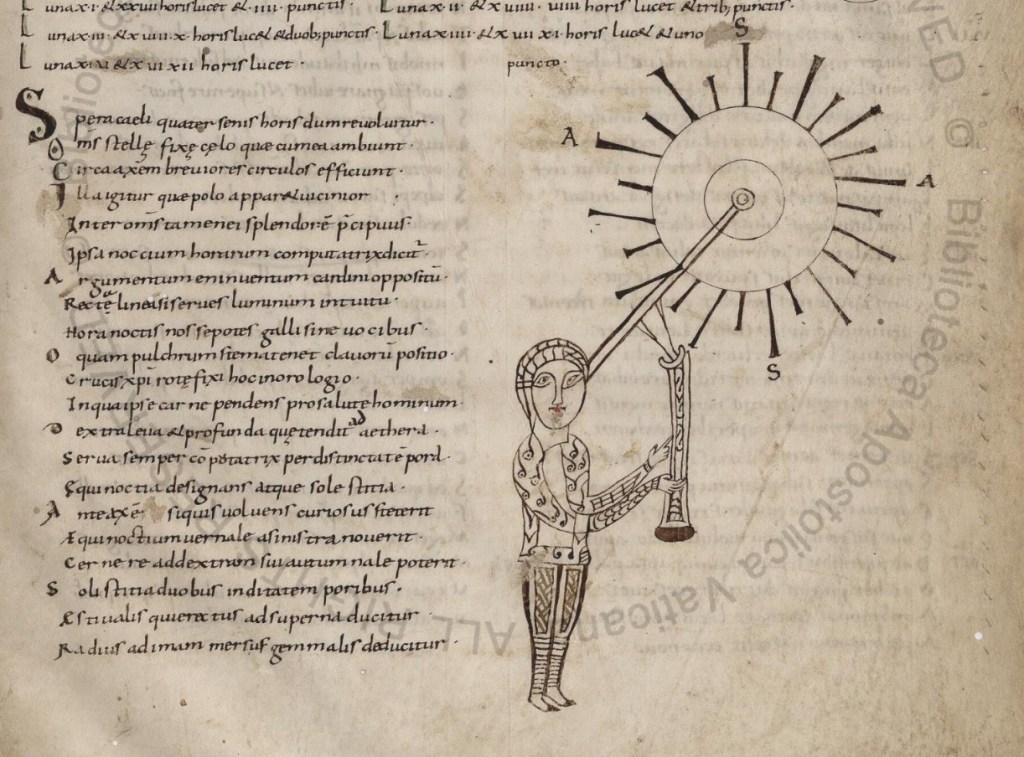 una x·i· & xx uii horis lucet & ·iiii· punctis· Luna x·ii· & x uiiii· uiiii horis lucet & trib; punctis·
Luna x·iii· & x uiii· x· horis luc& & duob; punctis· Luna x iiii· & x uii xi· horis luc& & uno
Luna x·u· & x ui xii horis lucet· puncto·
Spera caeli quater senis horis dum reuoluitur·
Oms stellę fixę cęlo quae cum ea ambiunt·
Circa axem breuiores circulos efficiunt·
Illa igitur quę polo appar& uicinior
Inter oms tamen ei splendorē p̄cipuus·
Ipsa noccium horarum computatrix dicit᷑
Argumentum en inuentum cardini oppositū·
Rectę lineas si serues luminum intuitu·
Hora noctis nosse potes galli sine uocibus·
O quam pulchrum stema tenet clauorū positio·
Crucis xp̄i rotę fixi hoc in orologio·
In qua ipse carne pendens pro salute hominum·
Dextra leua & profunda quę tendit ad aethera·
Serua semper cōpotatrix per distincta tēpora·
Equinoctia designans atque solestitia·
Ante axē siquis uoluens curiosus steterit
Æquinoctium uernale a sinistra nouerit·
Cernere ad dextram sui autumnale poterit·
Solistitia duobus inditatem poribus·
Æstiualis qui erectus ad superna ducitur
Radius ad imam mersus gemmalis deducitur·
S
A
A
S
© Biblioteca Apostolica Vaticana ALL